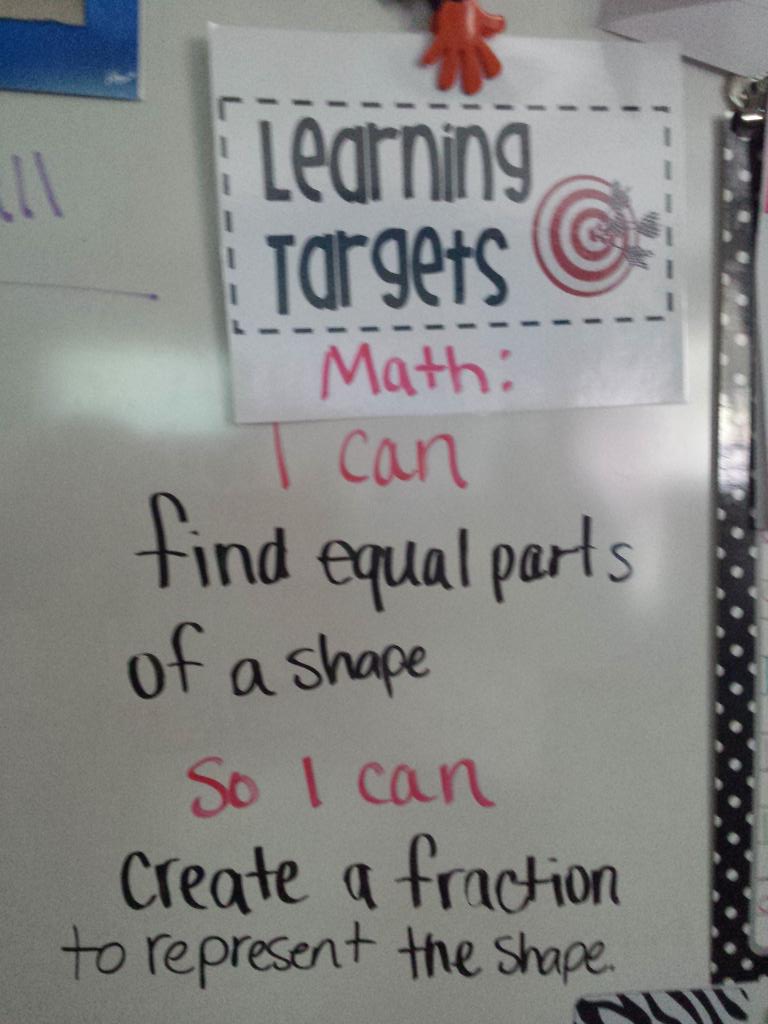 Learning
Targets
Math:
I can
find equal parts
of a shape
So I can
create a fraction
to represent the shape.